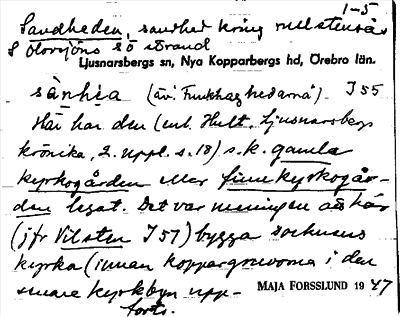 1-5
Sandheden, sandhed kring rullstensås
S Olovsjöns SÖ strand
Ljusnarsbergs sn, Nya Kopparbergs hd, Örebro län.
sànhèa (äv. Funkhagshedarna). I 55
Här har den (enl. Hult, Ljusnarsbergs
krönika, 2. uppl. s. 18) s.k. gamla
kyrkogården eller finnkyrkogår-
den legat. Det var meningen att här
(jfr Vilsten I 57) bygga socknens
kyrka (innan koppargruvorna i den
senare kyrkbyn upp-
forts.
MAJA FORSSLUND 1947